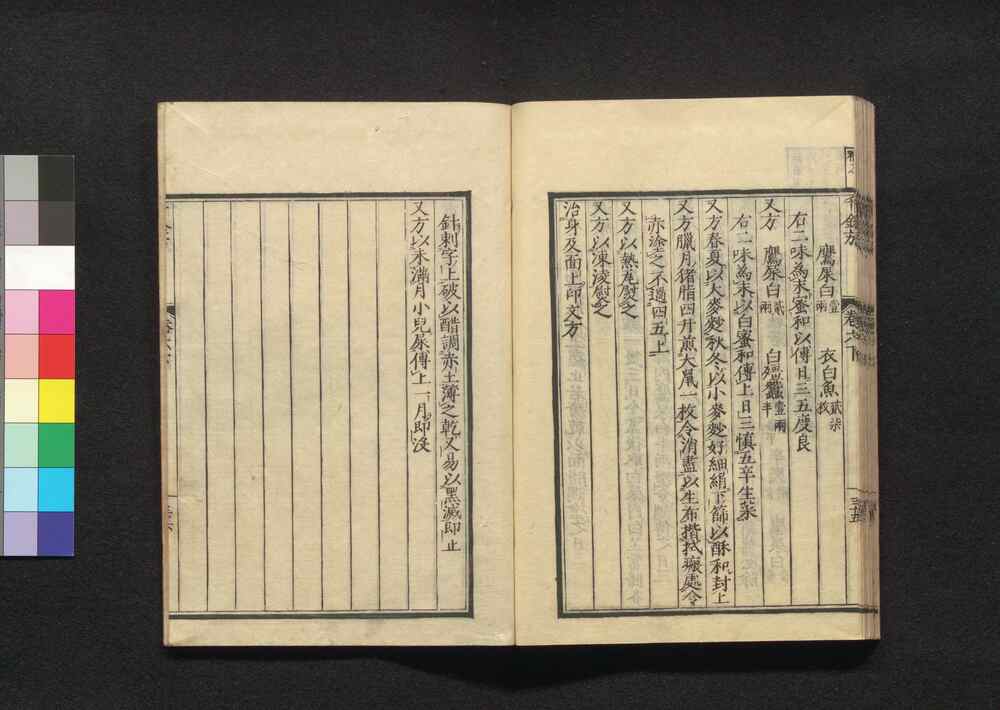 千金方
卷六下
三五
鷹屎白 壹兩 衣白魚 貳柒枚
右二味為末蜜和以傅日三五度良
又方 鷹屎白 貳兩 白殭蠶 壹兩半
右二味為末以白蜜和傅上日三慎五辛生菜
又方春夏以大麥麨秋冬以小麥麨好細絹下篩以酥和封上
又方臘月猪脂四升煎大鼠一枚令消盡以生布揩拭瘢處令
赤塗之不過四五上
又方以熱瓦熨之
又方以凍淩熨之
治身及面上印文方
針刺字上破以醋調赤土薄之乾又易以黑滅即止
又方以未滿月小兒屎傅上一月即沒